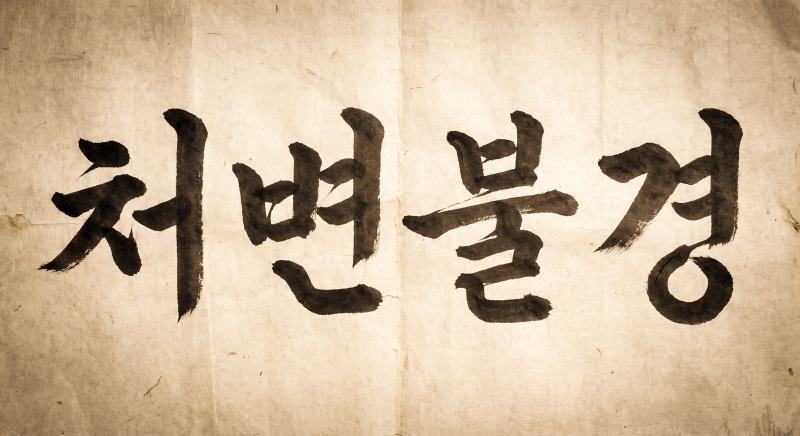 처변불경